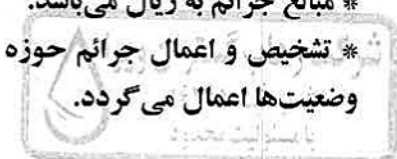 * مبالغ جرائم به ریال می‌باشد.
* تشخیص و اعمال جرائم حوزه
وضعیت‌ها اعمال می‌گردد.
با مسئولیت محدود